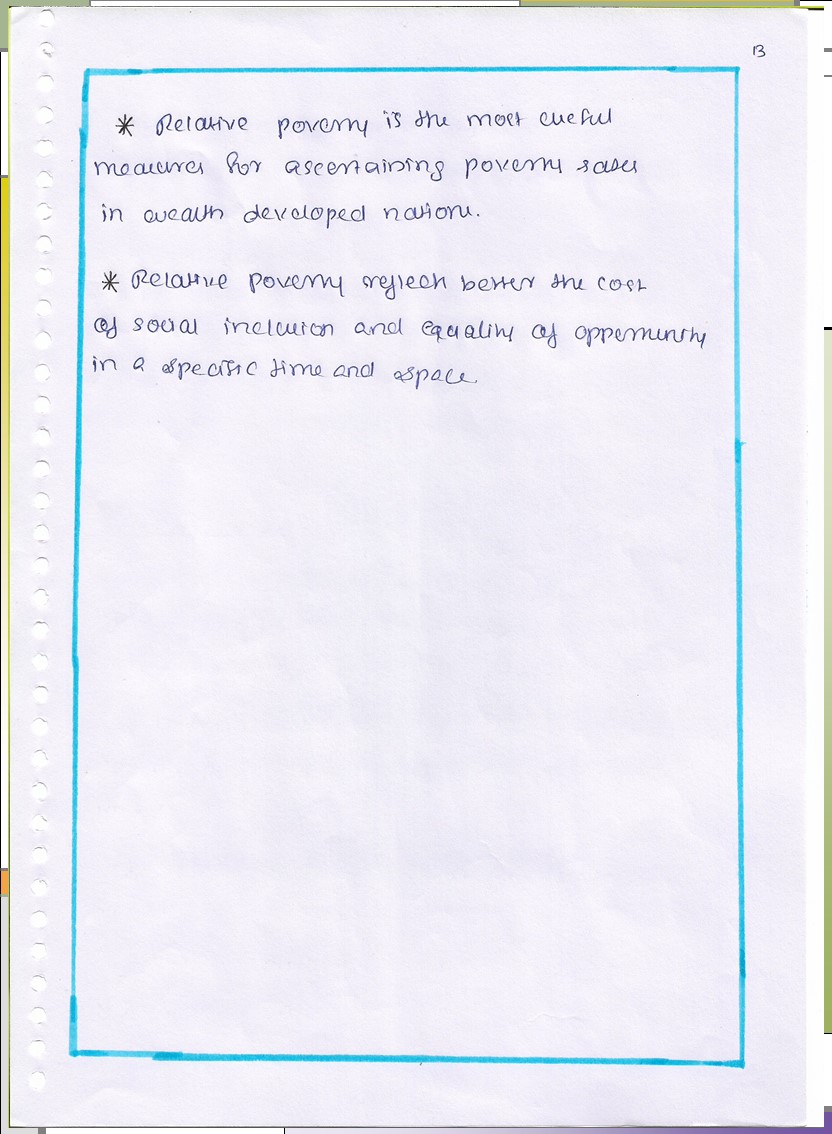 13
* Relative poverty is the most useful
measures for ascertaining poverty rates
in wealth developed nations.
* Relative poverty reflects better the cost
of social inclusion and equality of opportunity
in a specific time and space.